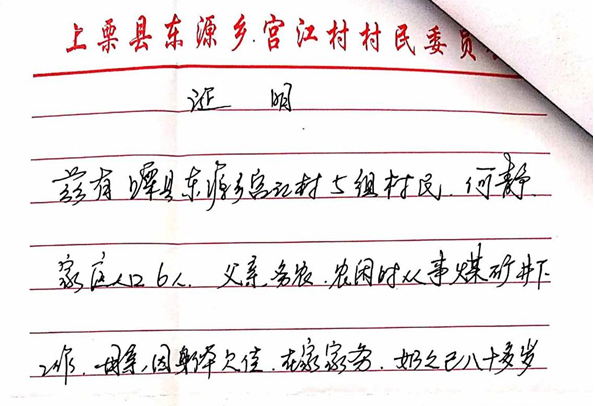 上栗县东源乡宫江村村民委员
证 明
兹有上栗县东源乡宫江村5组村民、何静、
家庭人口6人、父亲务农、农闲时从事煤矿井下
工作、母亲、因身体欠佳、在家家务、奶奶已八十多岁